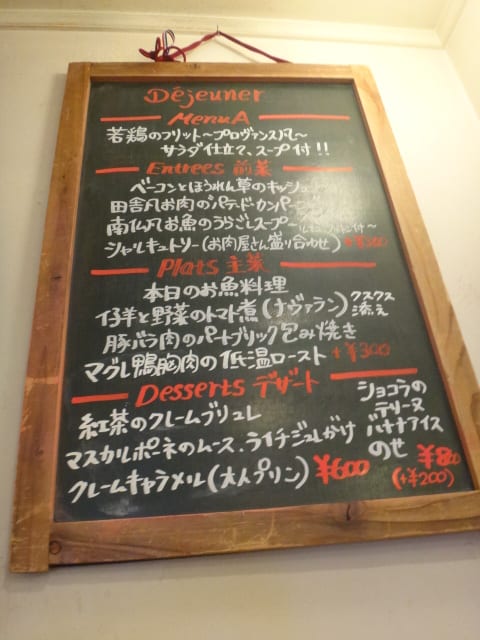 Déjeuner
Menu A
若鶏のフリット〜プロヴァンス風〜
サラダ仕立て、スープ付!!
Entrées 前菜
ベーコンとほうれん草のキッシュ
田舎風お肉のパテ・ド・カンパーニュ
南仏風お魚のうらごしスープ〜
シャルキュトリー(お肉屋さん盛り合わせ)
Plats 主菜
本日のお魚料理
仔羊と野菜のトマト煮(ナヴァラン)クスクス添え
豚バラ肉のパートブリック包み焼き
マグレ鴨胸肉の低温ロースト +¥300
Desserts デザート
紅茶のクレームブリュレ
マスカルポーネのムース、ライチジュレがけ
クレームキャラメル(大人プリン) ¥600
ショコラの
テリーヌ
バナナアイス
のせ ¥800
(+¥200)